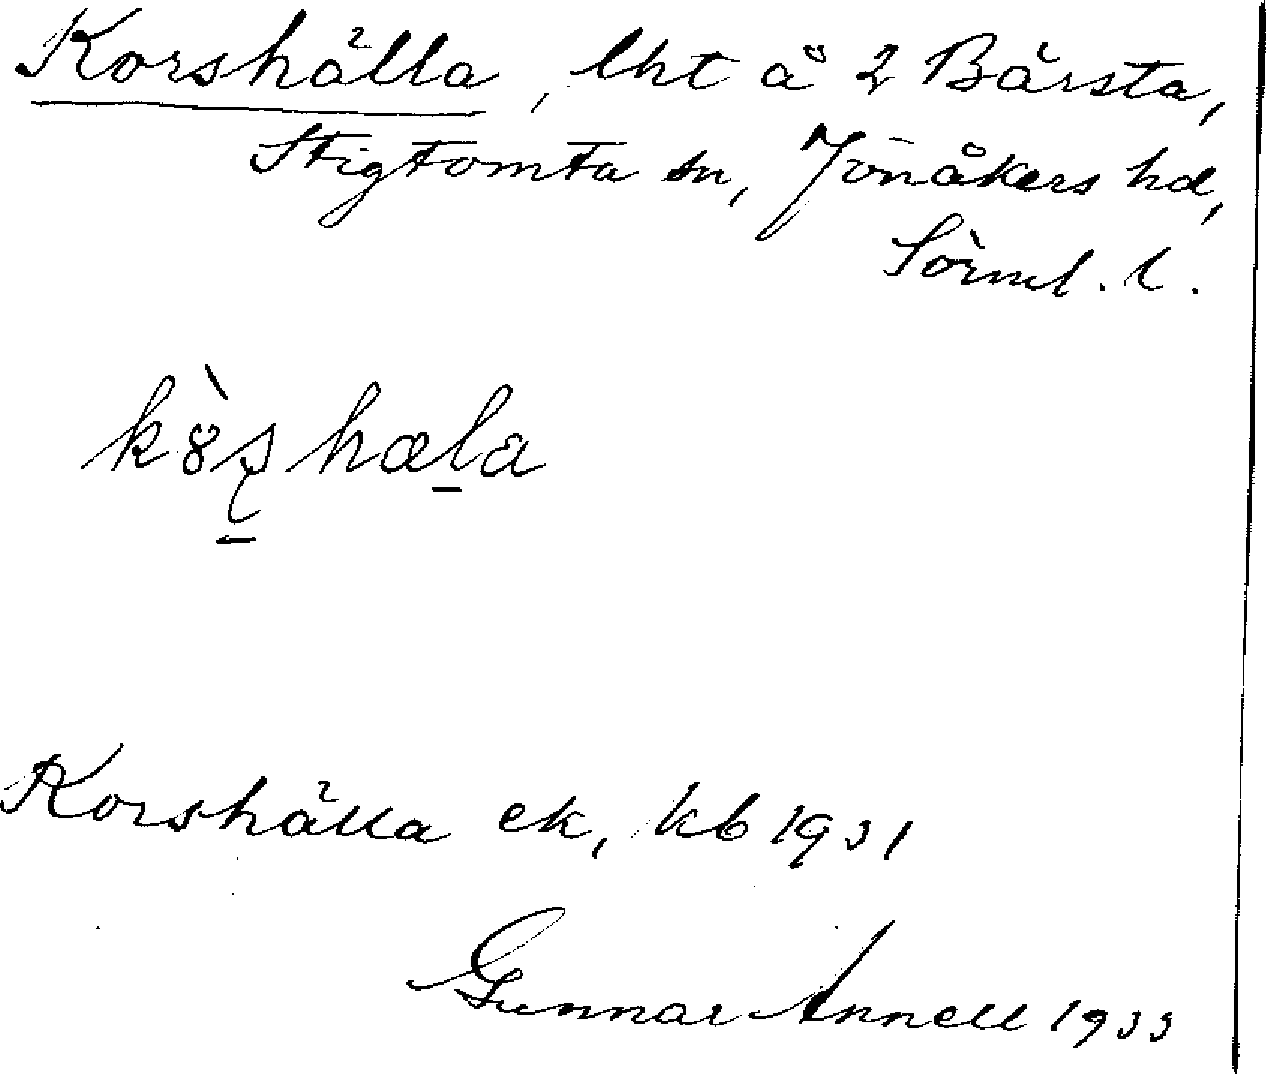 Korshälla, lht å 2 Bärsta,
Stigtomta sn, Jönåkers hd,
Sörml. l.
kò̤ʂhæla
Korshälla ek, kb 1931
Gunnar Annell 1933